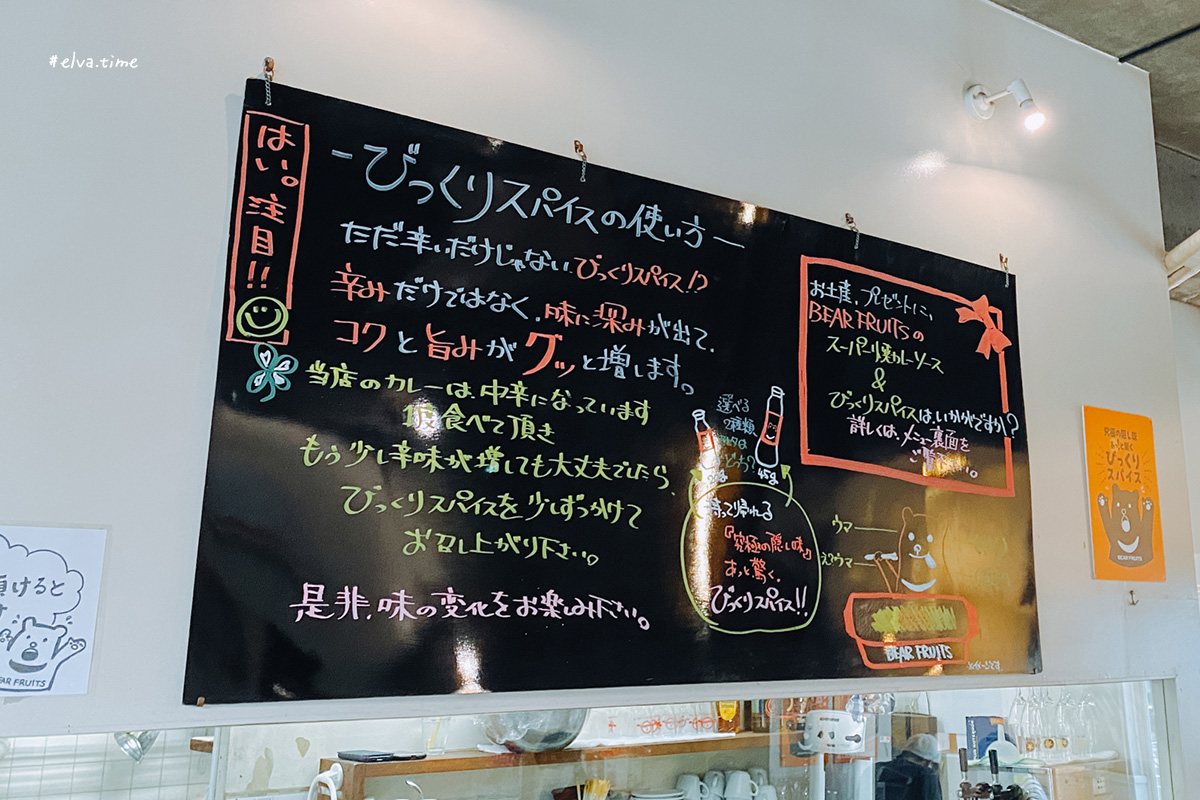 #elva.time
はい。注目!!
-びっくりスパイスの使い方-
ただ辛いだけじゃない、びっくりスパイス!?
辛みだけではなく、味に深みが出て、
コクと旨みがグッと増します。
当店のカレーは、中辛になっています
食べて頂き
もう少し辛味が増しても大丈夫でしたら、
びっくりスパイスを少しずつかけて
お召し上がり下さい。
是非、味の変化をお楽しみ下さい。
選べる
2種類
どっち?
45g
持って帰れる
『究極の隠し味』
あっと驚く、
びっくりスパイス!!
お土産、プレゼントに、
BEAR FRUITSの
スーパー焼カレーソース
&
びっくりスパイスは、いかがですか?
詳しくは、メニュー裏面を
ご覧下さい。
ウマー
えウマー
BEAR FRUITS
究極の隠し味
あっと驚く
びっくり
スパイス
BEAR FRUITS
頂けると
BEAR FRUITS